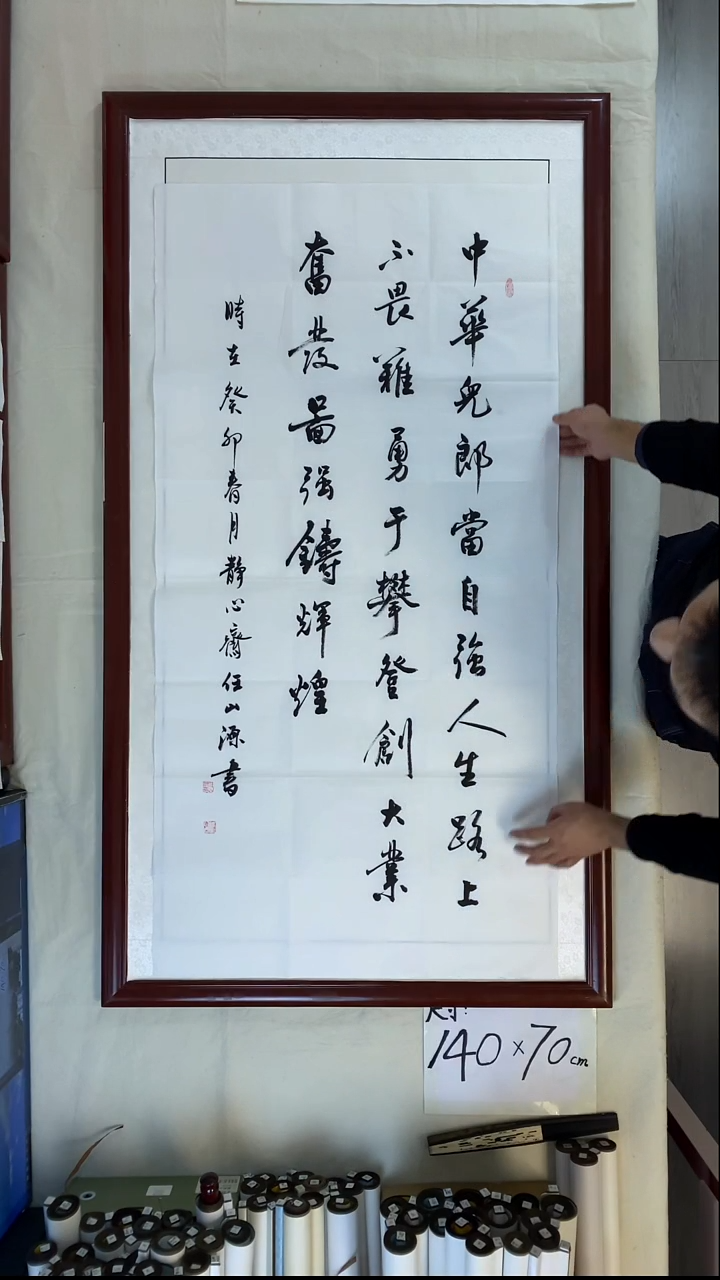 中華兒郎當自強人生路上
不畏難勇于攀登創大業
奮發圖强鑄輝煌
時在癸卯春月靜心齋任山源書
尺寸:
140×70cm